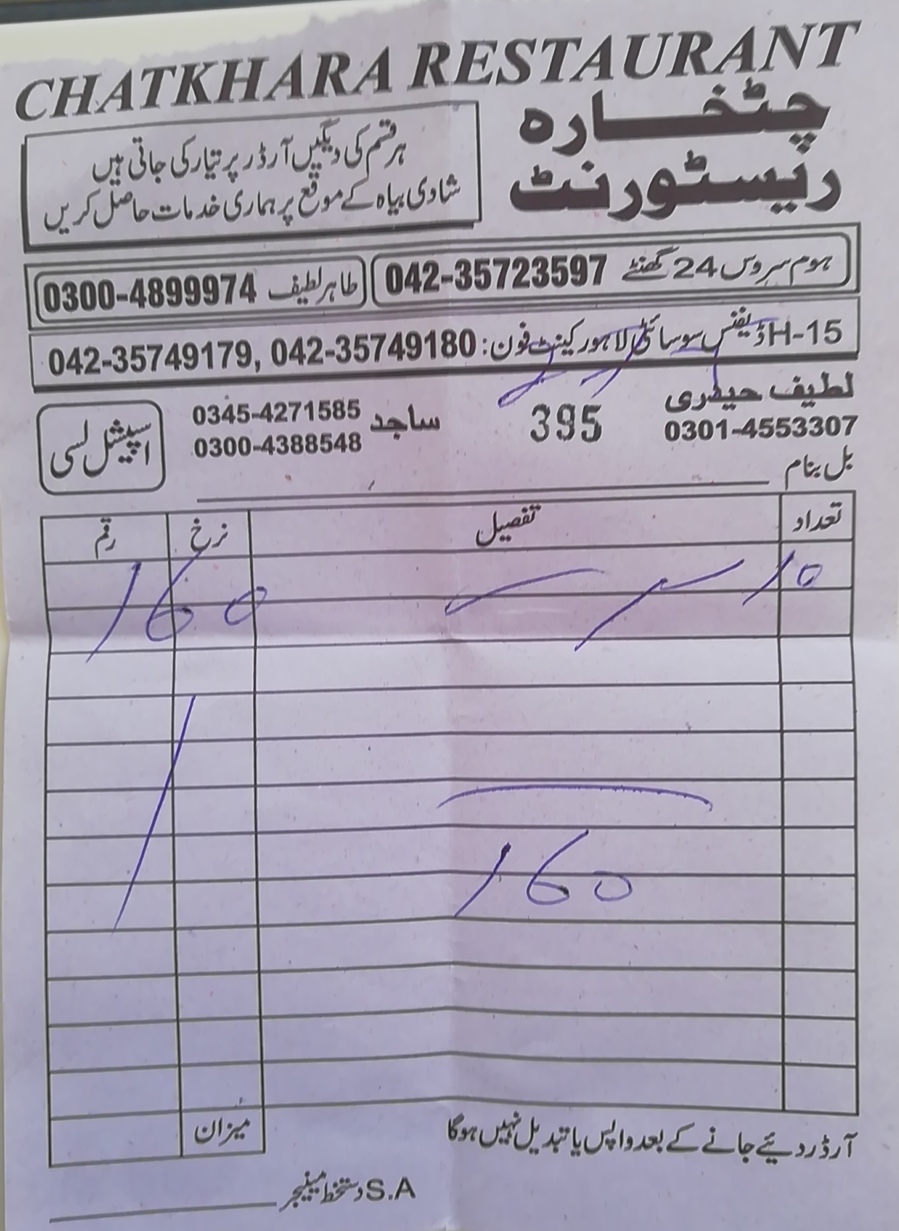 CHATKHARA RESTAURANT
چٹخارہ
ریسٹورنٹ
ہر قسم کی دیگیں آرڈر پر تیار کی جاتی ہیں
شادی بیاہ کے موقع پر ہماری خدمات حاصل کریں
ہوم سروس 24 گھنٹے 042-35723597
طاہر لطیف 0300-4899974
H-15 ڈیفنس سوسائٹی لاہور کینٹ فون: 042-35749180 ,042-35749179
لطیف حیدری
0301-4553307
395
ساجد
0345-4271585
0300-4388548
اسپیشل لسی
بل بنام
تعداد تفصیل نرخ رقم
10 160
160
میزان
آرڈر دیئے جانے کے بعد واپس یا تبدیل نہیں ہوگا
S.A دستخط مینیجر